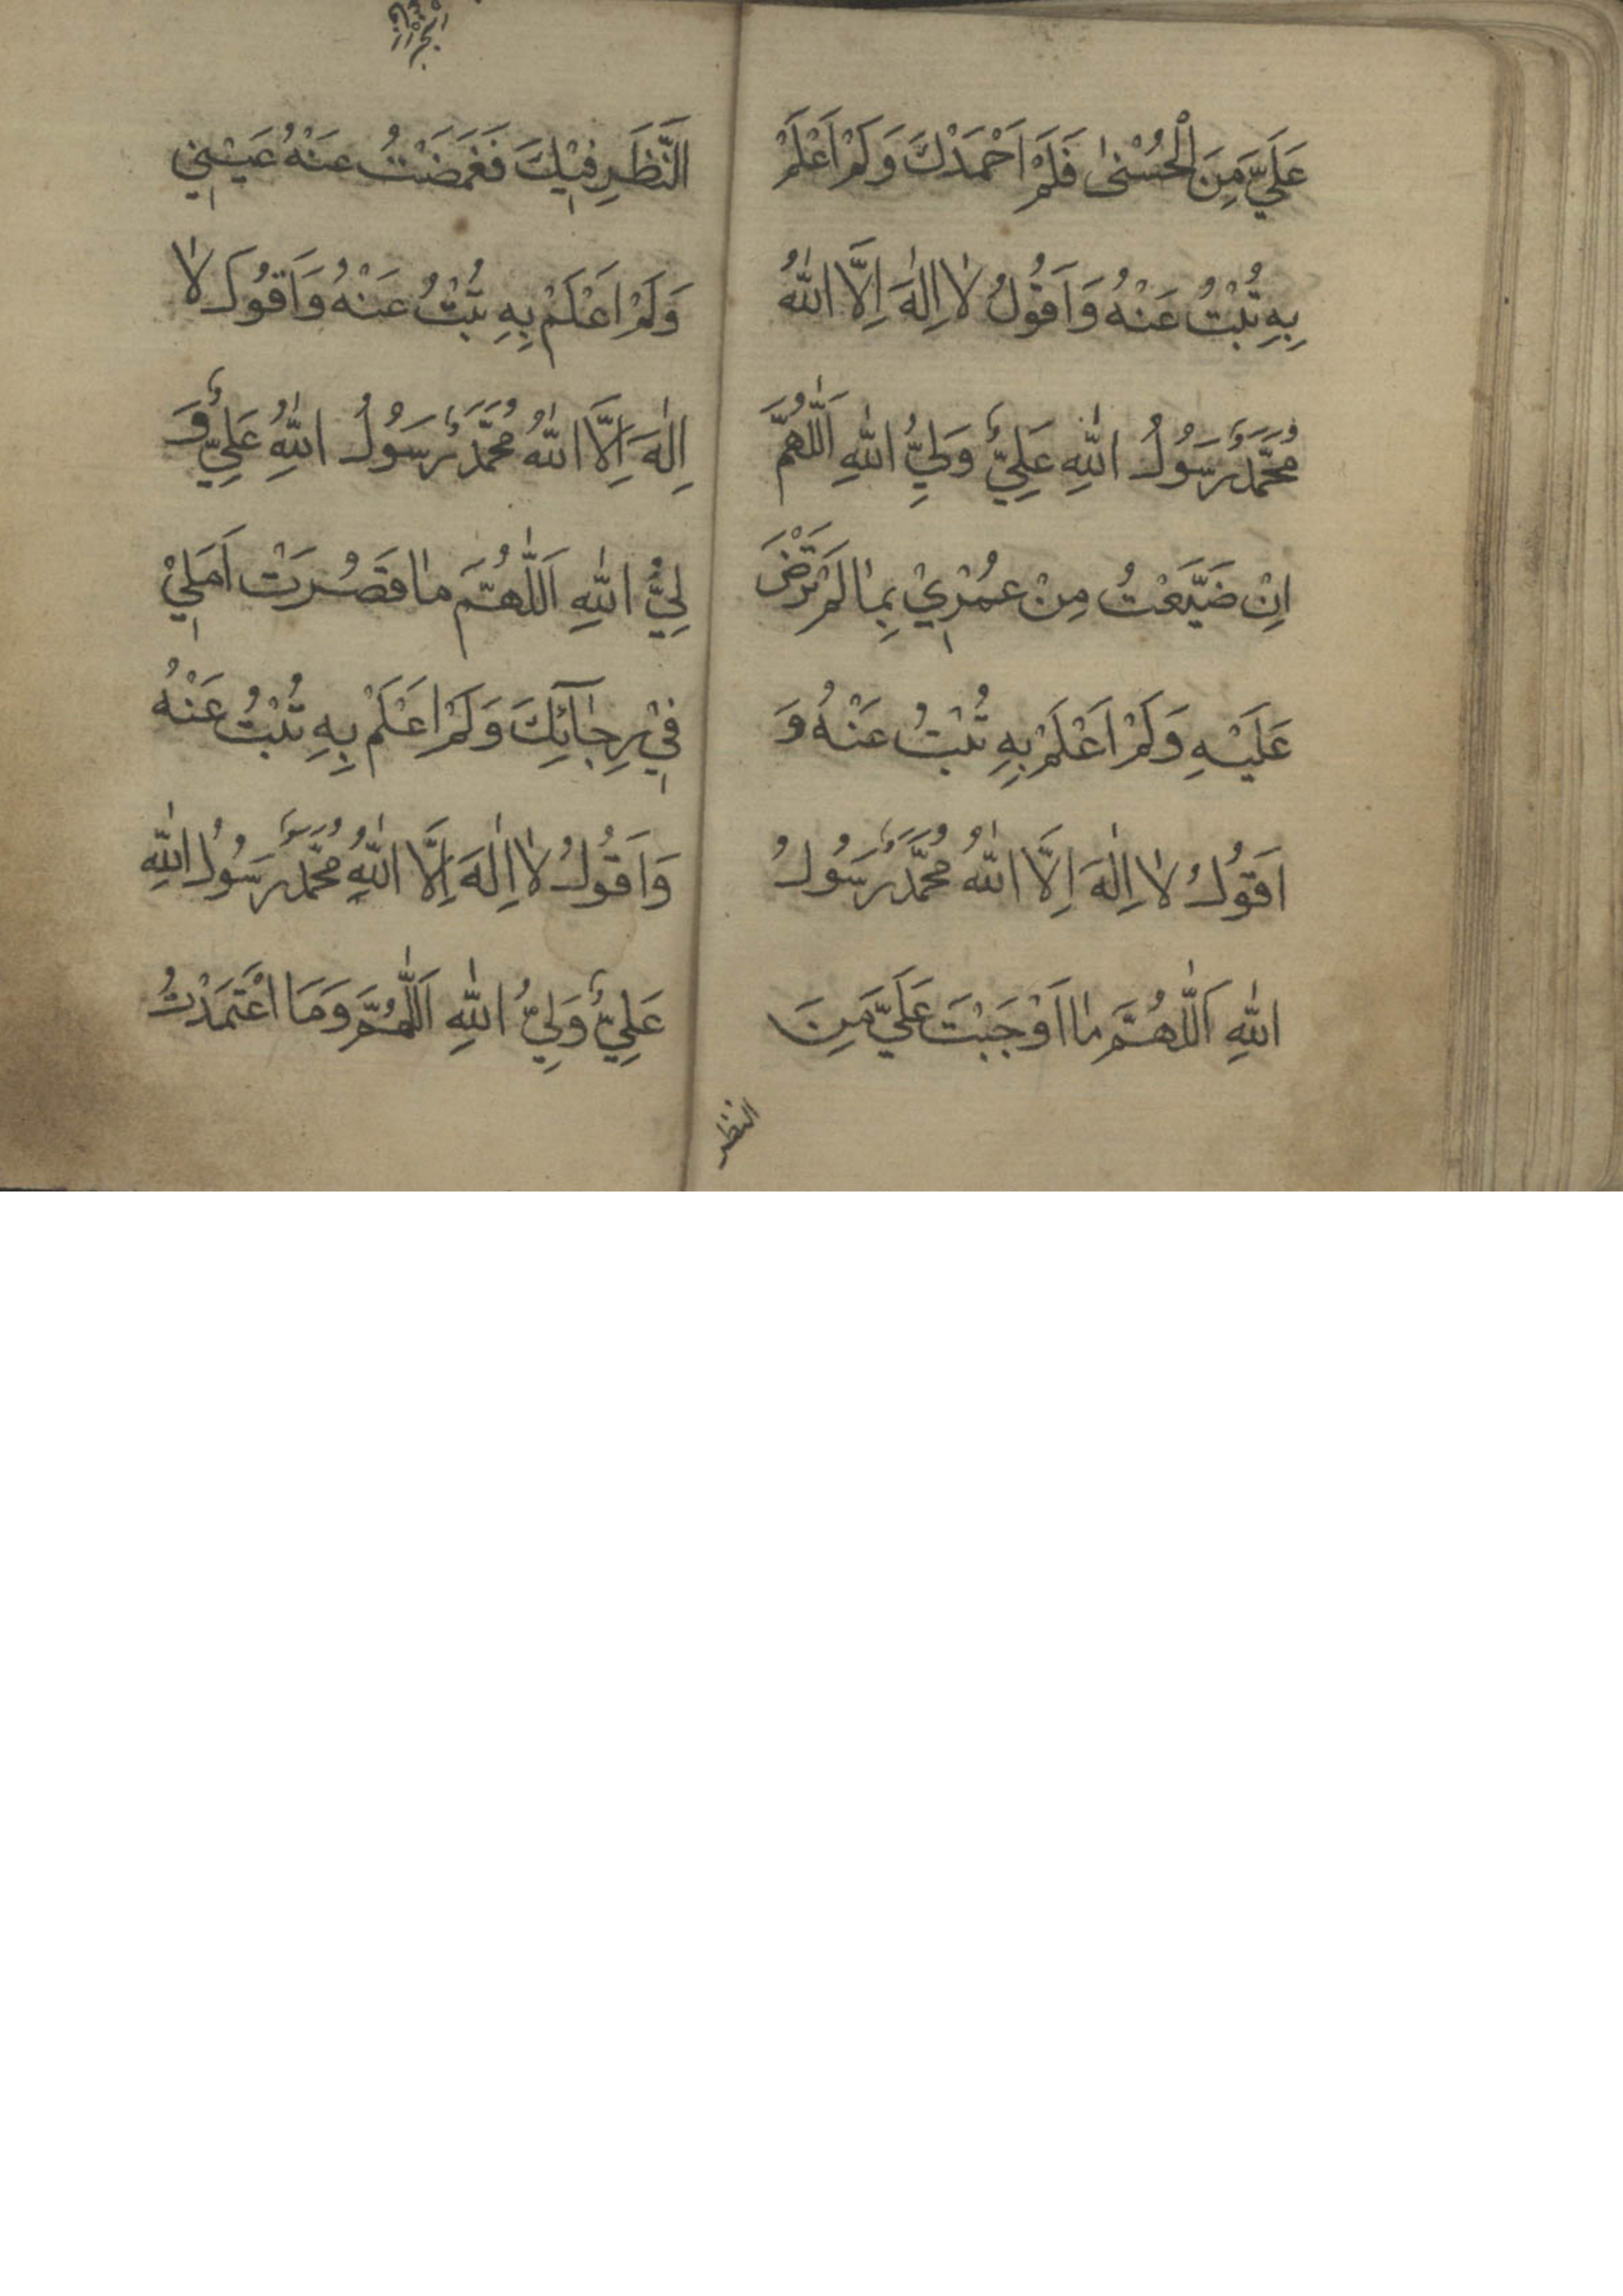 عَلَيَّ مِنَ الْحُسْنىٰ فَلَمْ اَحْمَدْكَ وَلَمْ اَعْلَمْ
بِهِ تُبْتُ عَنْهُ وَاَقُولُ لٰا اِلٰهَ اِلَّا اللّٰهُ
مُحَمَّدٌ رَسُولُ اللّٰهِ عَلِيٌّ وَلِيُّ اللّٰهِ اَللّٰهُمَّ
اِنْ ضَيَّعْتُ مِنْ عُمْرِيْ بِمٰا لَمْ تَرْضَ
عَلَيْهِ وَلَمْ اَعْلَمْ بِهِ تُبْتُ عَنْهُ وَ
اَقُولُ لٰا اِلٰهَ اِلَّا اللّٰهُ مُحَمَّدٌ رَسُولُ
اللّٰهِ اَللّٰهُمَّ مٰا اَوْجَبْتَ عَلَيَّ مِنَ
النظر
اَلنَّظَرِ فِيْكَ فَغَمَضْتُ عَنْهُ عَيْنِي
وَلَمْ اَعْلَمْ بِهِ تُبْتُ عَنْهُ وَاَقُولُ لٰا
اِلٰهَ اِلَّا اللّٰهُ مُحَمَّدٌ رَسُولُ اللّٰهِ عَلِيٌّ وَ
لِيُّ اللّٰهِ اَللّٰهُمَّ مٰا قَصُرَتْ اَمَلِيْ
فِيْ رِجٰآئِكَ وَلَمْ اَعْلَمْ بِهِ تُبْتُ عَنْهُ
وَاَقُولُ لٰا اِلٰهَ اِلَّا اللّٰهُ مُحَمَّدٌ رَسُولُ اللّٰهِ
عَلِيٌّ وَلِيُّ اللّٰهِ اَللّٰهُمَّ وَمَا اعْتَمَدْتُ